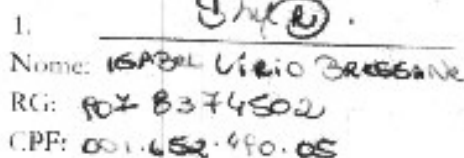 1.
Nome: ISABEL VIRIO BRESSANE
RG: 807 8374502
CPF: 001.652.490.05